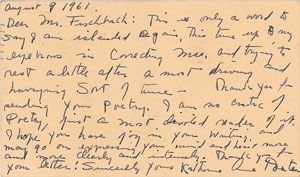 August 9 1961.
Dear Mr. Fischbach: This is only a word to
say I am islanded again, this time up to my
eyebrows in Correcting Mss. and trying to
rest a little after a most driving and
hurrying Sort of time — Thank you for
sending your Poetry. I am no critic of
Poetry, just a most devoted reader of it.
I hope you have joy in your Writing, and
may go on expressing your mind and heart more
and more clearly and intensely. Thank you for
your letter! Sincerely yours Katherine Anne Porter